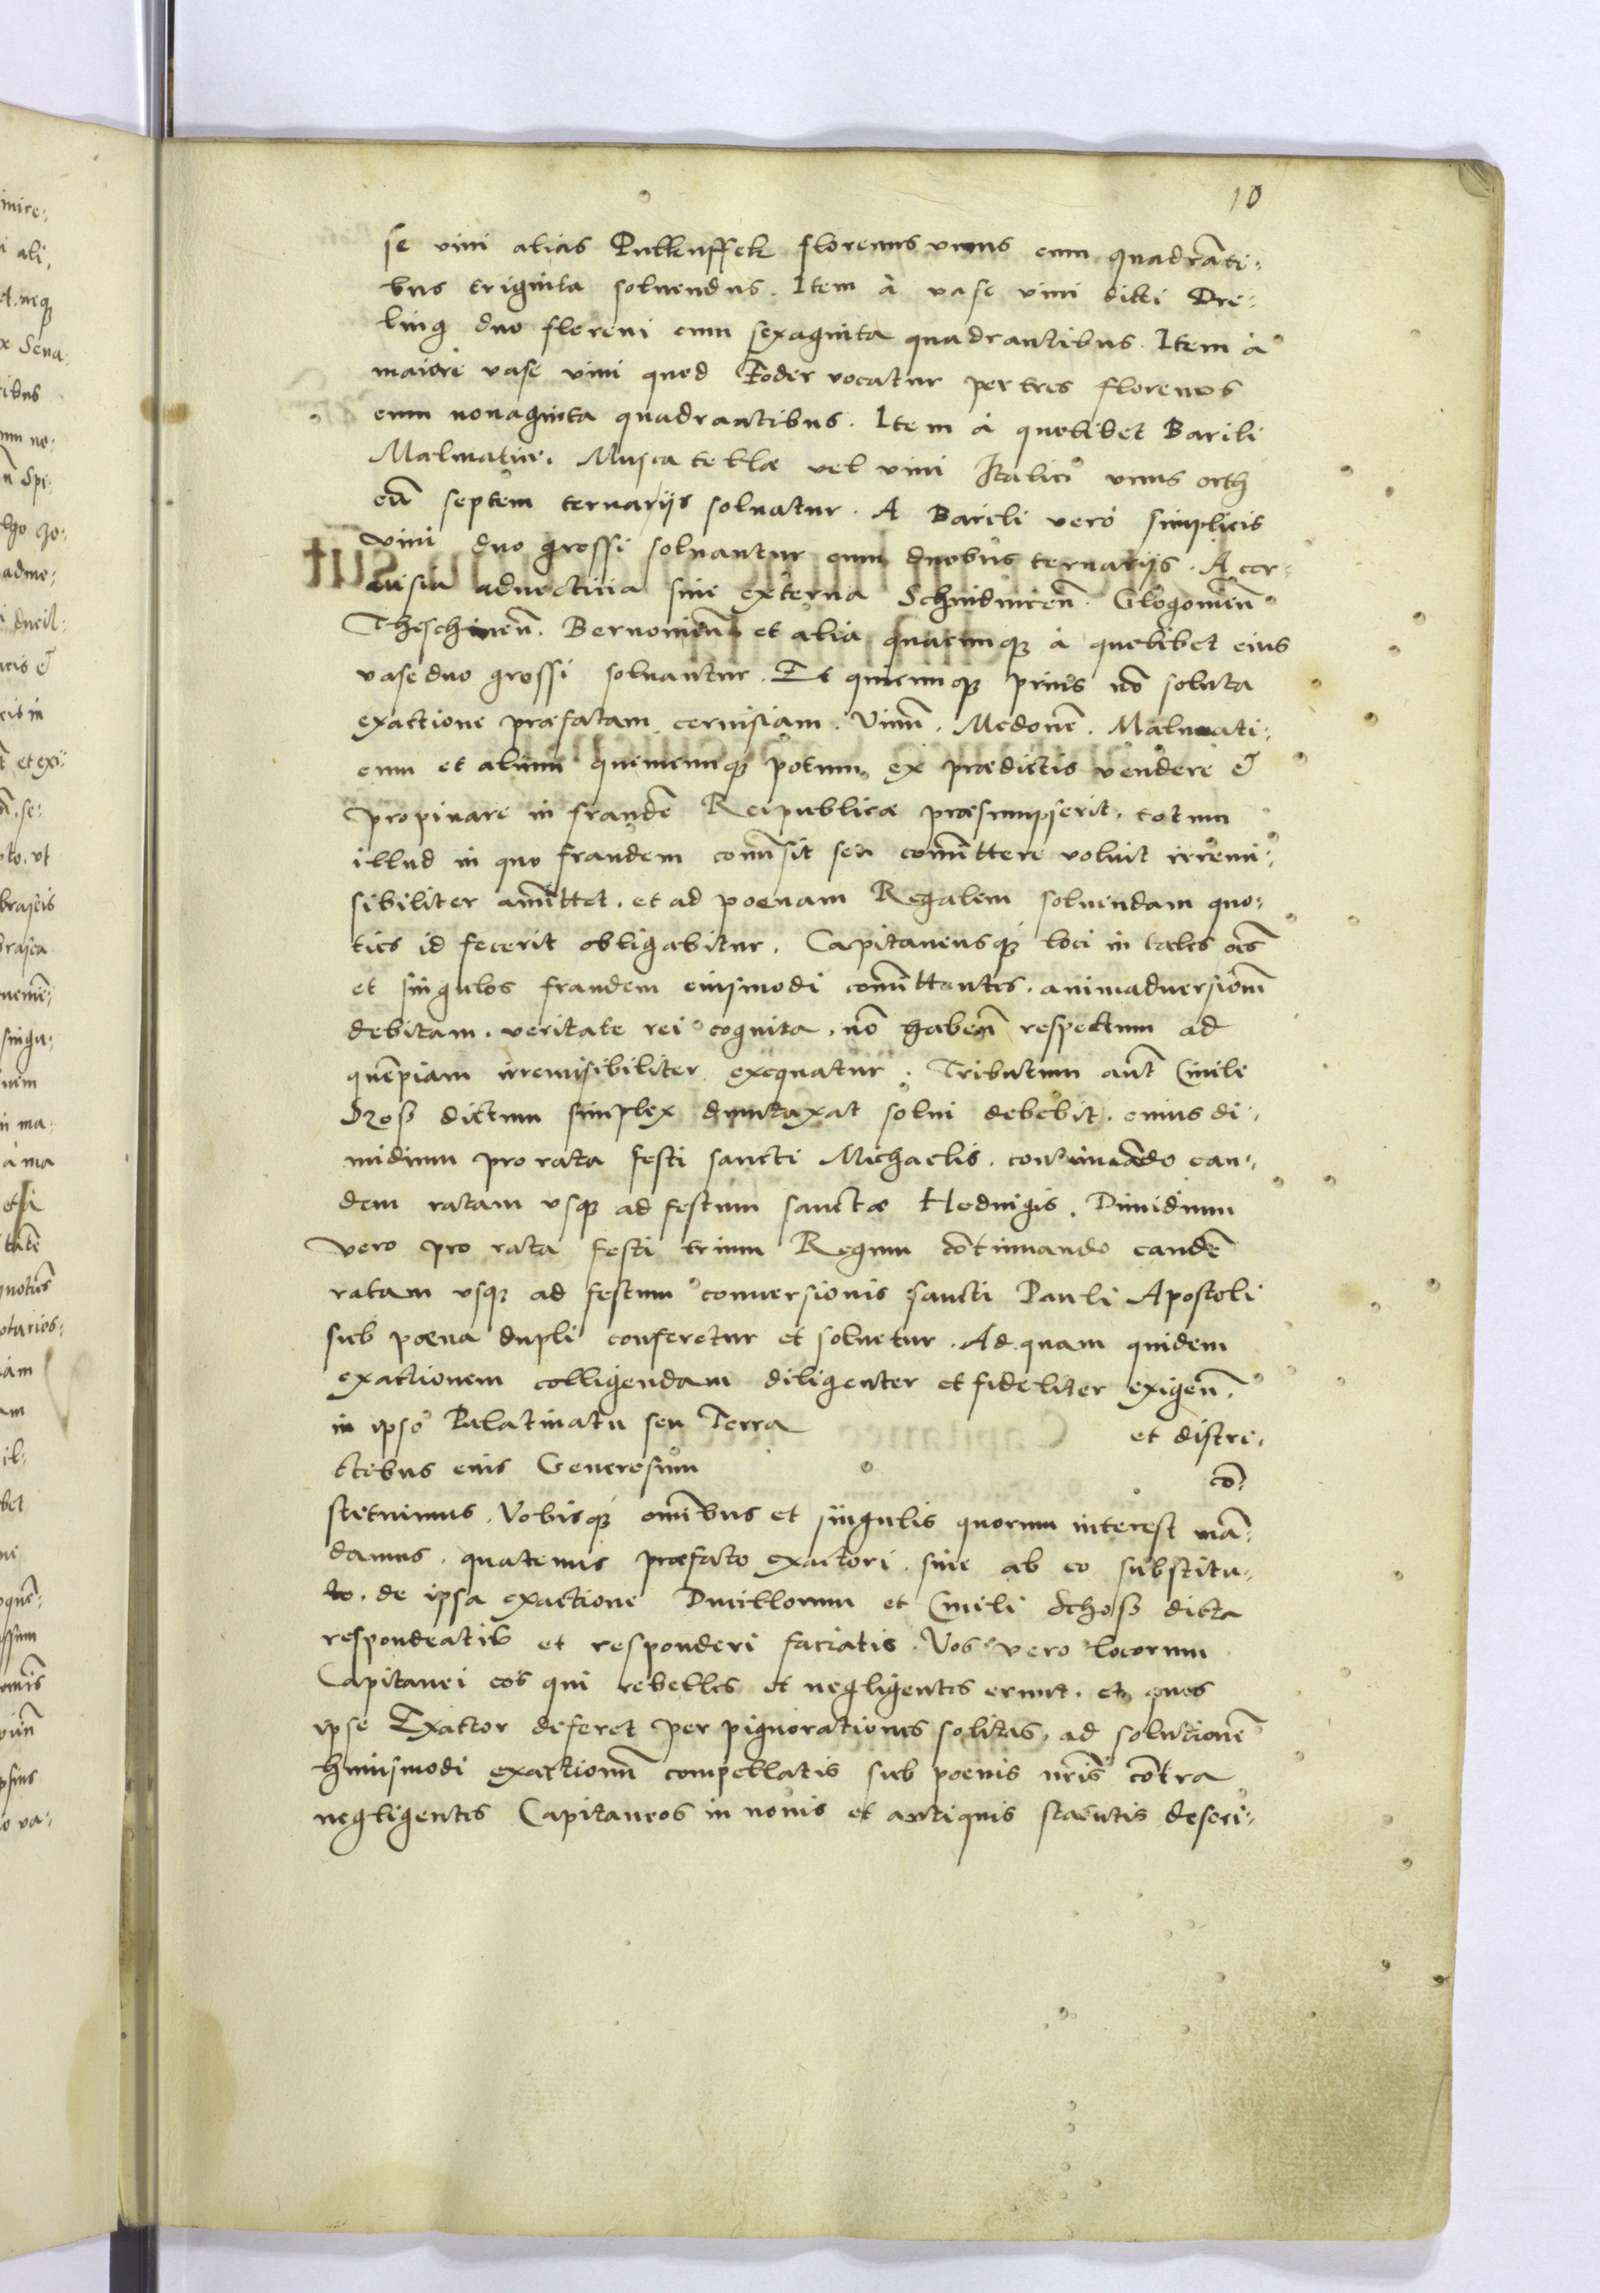 10
se vini alias Pulkuffek florenus vnus cum quadrāti:
bus triginta soluendus. Item à vase vini dicti Drei:
ling duo floreni cum sexaginta quadrantibus. Item à
maiori vase vini quod Foder vocatur per tres florenos
cum nonaginta quadrantibus. Item à quolibet Barili
Malmatici. Muscatellæ vel vini Italici vnus orth
cū septem ternarijs soluatur. A Barili vero simplicis
vini duo grossi soluantur cum duobus ternarijs. A cer:
uisia aduecticia siue externa Schuidnicen̄. Glogouien̄
Theschinen̄. Bernouien̄ et alia quacunqȝ à quolibet eius
vase duo grossi soluantur. Et quicunqȝ prius nō soluta
exactione præfatam ceruisiam. Vinū. Medonē. Maluuati:
cum et alium quemcunqȝ potum ex prædictis vendere &
propinare in fraudē Reipublicæ præsumpserit. totum
illud in quo fraudem com̄isit seu com̄ittere voluit irremi:
sibiliter am̄ittet. et ad poenam Regalem soluendam quo:
ties id fecerit obligabitur. Capitaneusqȝ loci in tales oēs
et singulos fraudem eiusmodi com̄ittentes. animaduersionē
debitam. veritate rei cognita. nō haben̄ respectum ad
quēpiam irremisibiliter exequatur. Tributum aūt Ciuile
Szoß dictum simplex duntaxat solui debebit. cuius di:
midium pro rata festi sancti Michaelis. continuādo ean:
dem ratam vsqȝ ad festum sanctæ Heduigis. Dimidium
vero pro rata festi trium Regum cōtinuando eandē
ratam vsqȝ ad festum conuersionis sancti Pauli Apostoli
sub poena dupli conferetur et soluetur. Ad quam quidem
exactionem colligendam diligenter et fideliter exigen̄.
in ipso Palatinatu seu Terra et distri:
ctibus eius Generosum cō:
stituimus. Vobisqȝ om̄ibus et singulis quorum interest mā:
damus. quatenus præfato exactori. siue ab eo substitu:
to. de ipsa exactione Ducillorum et Ciuili Schoß dicta
respondeatis et responderi faciatis. Vos vero locorum
Capitanei eos qui rebelles et negligentes erunt. et quos
ipse Exactor deferet per pignorationes solitas. ad solutionē
huiusmodi exactionū compellatis sub poenis nr̄is cōtra
negligentes Capitaneos in nouis et antiquis statutis descri: